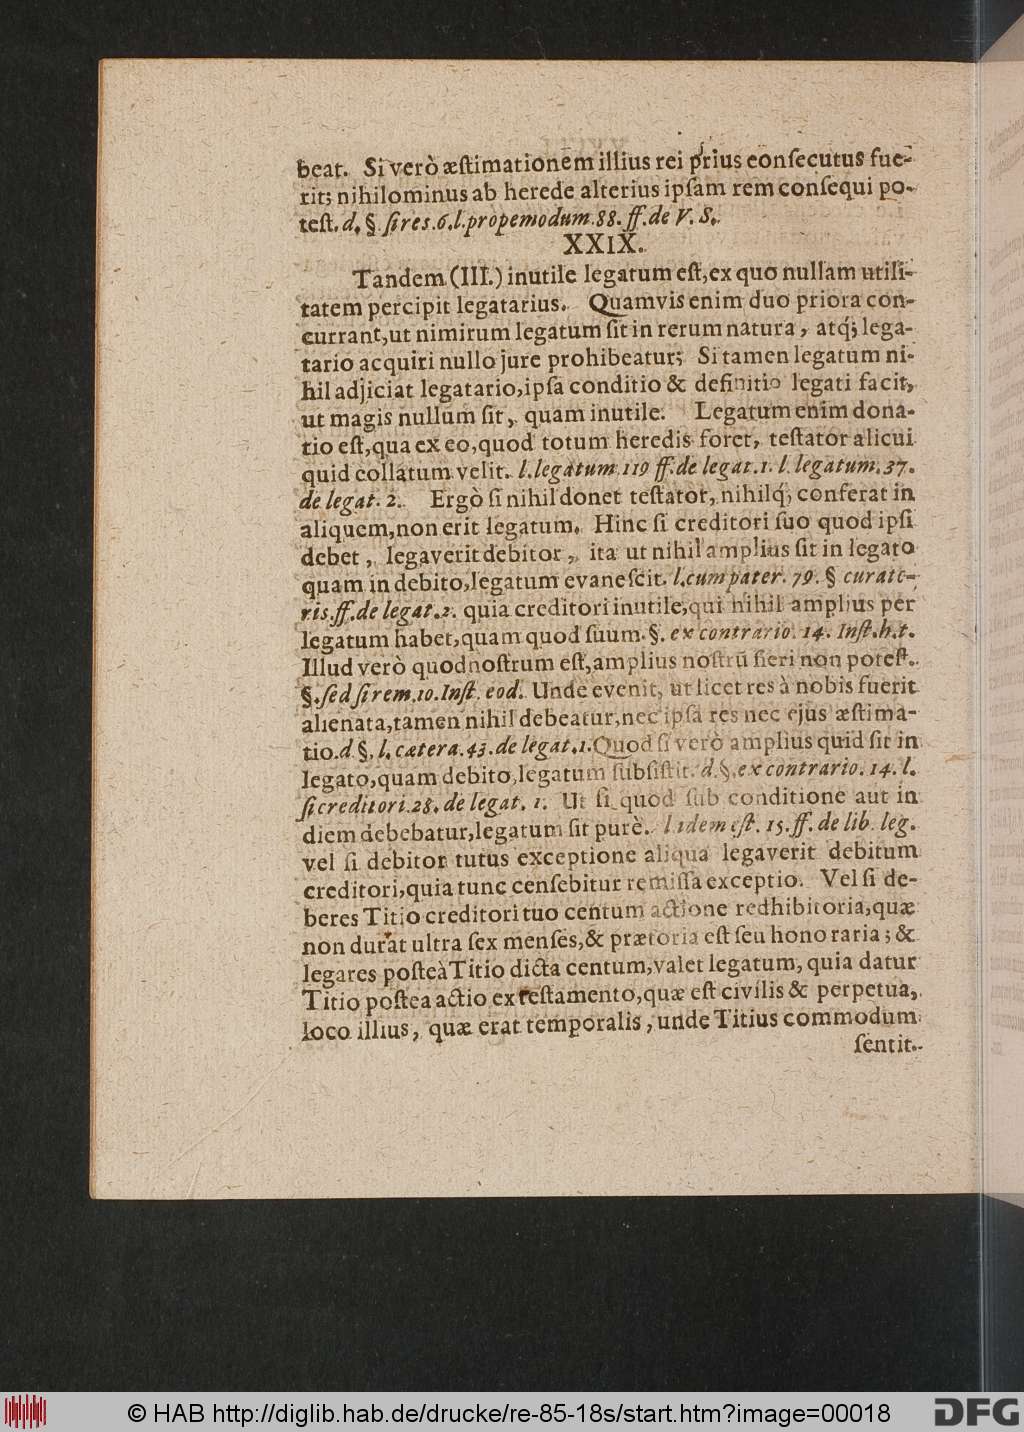 beat. Si verò æſtimationem illius rei prius conſecutus fue-
rit; nihilominus ab herede alterius ipſam rem conſequi po-
teſt. d. §. ſi res. 6. l. propemodum. 88. ff. de V. S.
XXIX.
Tandem (III.) inutile legatum eſt, ex quo nullam utili-
tatem percipit legatarius. Quamvis enim duo priora con-
currant, ut nimirum legatum ſit in rerum natura, atq́; lega-
tario acquiri nullo jure prohibeatur; Si tamen legatum ni-
hil adjiciat legatario, ipſa conditio & definitio legati facit,
ut magis nullum ſit, quam inutile. Legatum enim dona-
tio eſt, qua ex eo, quod totum heredis foret, teſtator alicui
quid collatum velit. l. legatum. 119 ff. de legat. 1. l. legatum. 37.
de legat. 2. Ergò ſi nihil donet teſtator, nihilq́; conferat in
aliquem, non erit legatum. Hinc ſi creditori ſuo quod ipſi
debet, legaverit debitor, ita ut nihil amplius ſit in legato
quam in debito, legatum evaneſcit. l. cum pater. 79. § curato-
ris. ff. de legat. 2. quia creditori inutile, qui nihil amplius per
legatum habet, quam quod ſuum. §. ex contrario. 14. Inſt. h. t.
Illud verò quod noſtrum eſt, amplius noſtrũ fieri non poteſt.
§. ſed ſi rem. 10. Inſt. eod. Unde evenit, ut licet res à nobis fuerit
alienata, tamen nihil debeatur, nec ipſa res nec ejus æſtima-
tio. d. §. l. cætera. 43. de legat. 1. Quod ſi verò amplius quid ſit in
legato, quam debito, legatum ſubſiſtit. d. §. ex contrario. 14. l.
ſi creditori. 28. de legat. 1. Ut ſi quod ſub conditione aut in
diem debebatur, legatum ſit purè. l. idem eſt. 15. ff. de lib. leg.
vel ſi debitor tutus exceptione aliqua legaverit debitum
creditori, quia tunc cenſebitur remiſſa exceptio. Vel ſi de-
beres Titio creditori tuo centum actione redhibitoria, quæ
non durat ultra ſex menſes, & prætoria eſt ſeu hono raria; &
legares poſteà Titio dicta centum, valet legatum, quia datur
Titio poſtea actio ex teſtamento, quæ eſt civilis & perpetua,
loco illius, quæ erat temporalis, unde Titius commodum
ſentit.
© HAB http://diglib.hab.de/drucke/re-85-18s/start.htm?image=00018
DFG